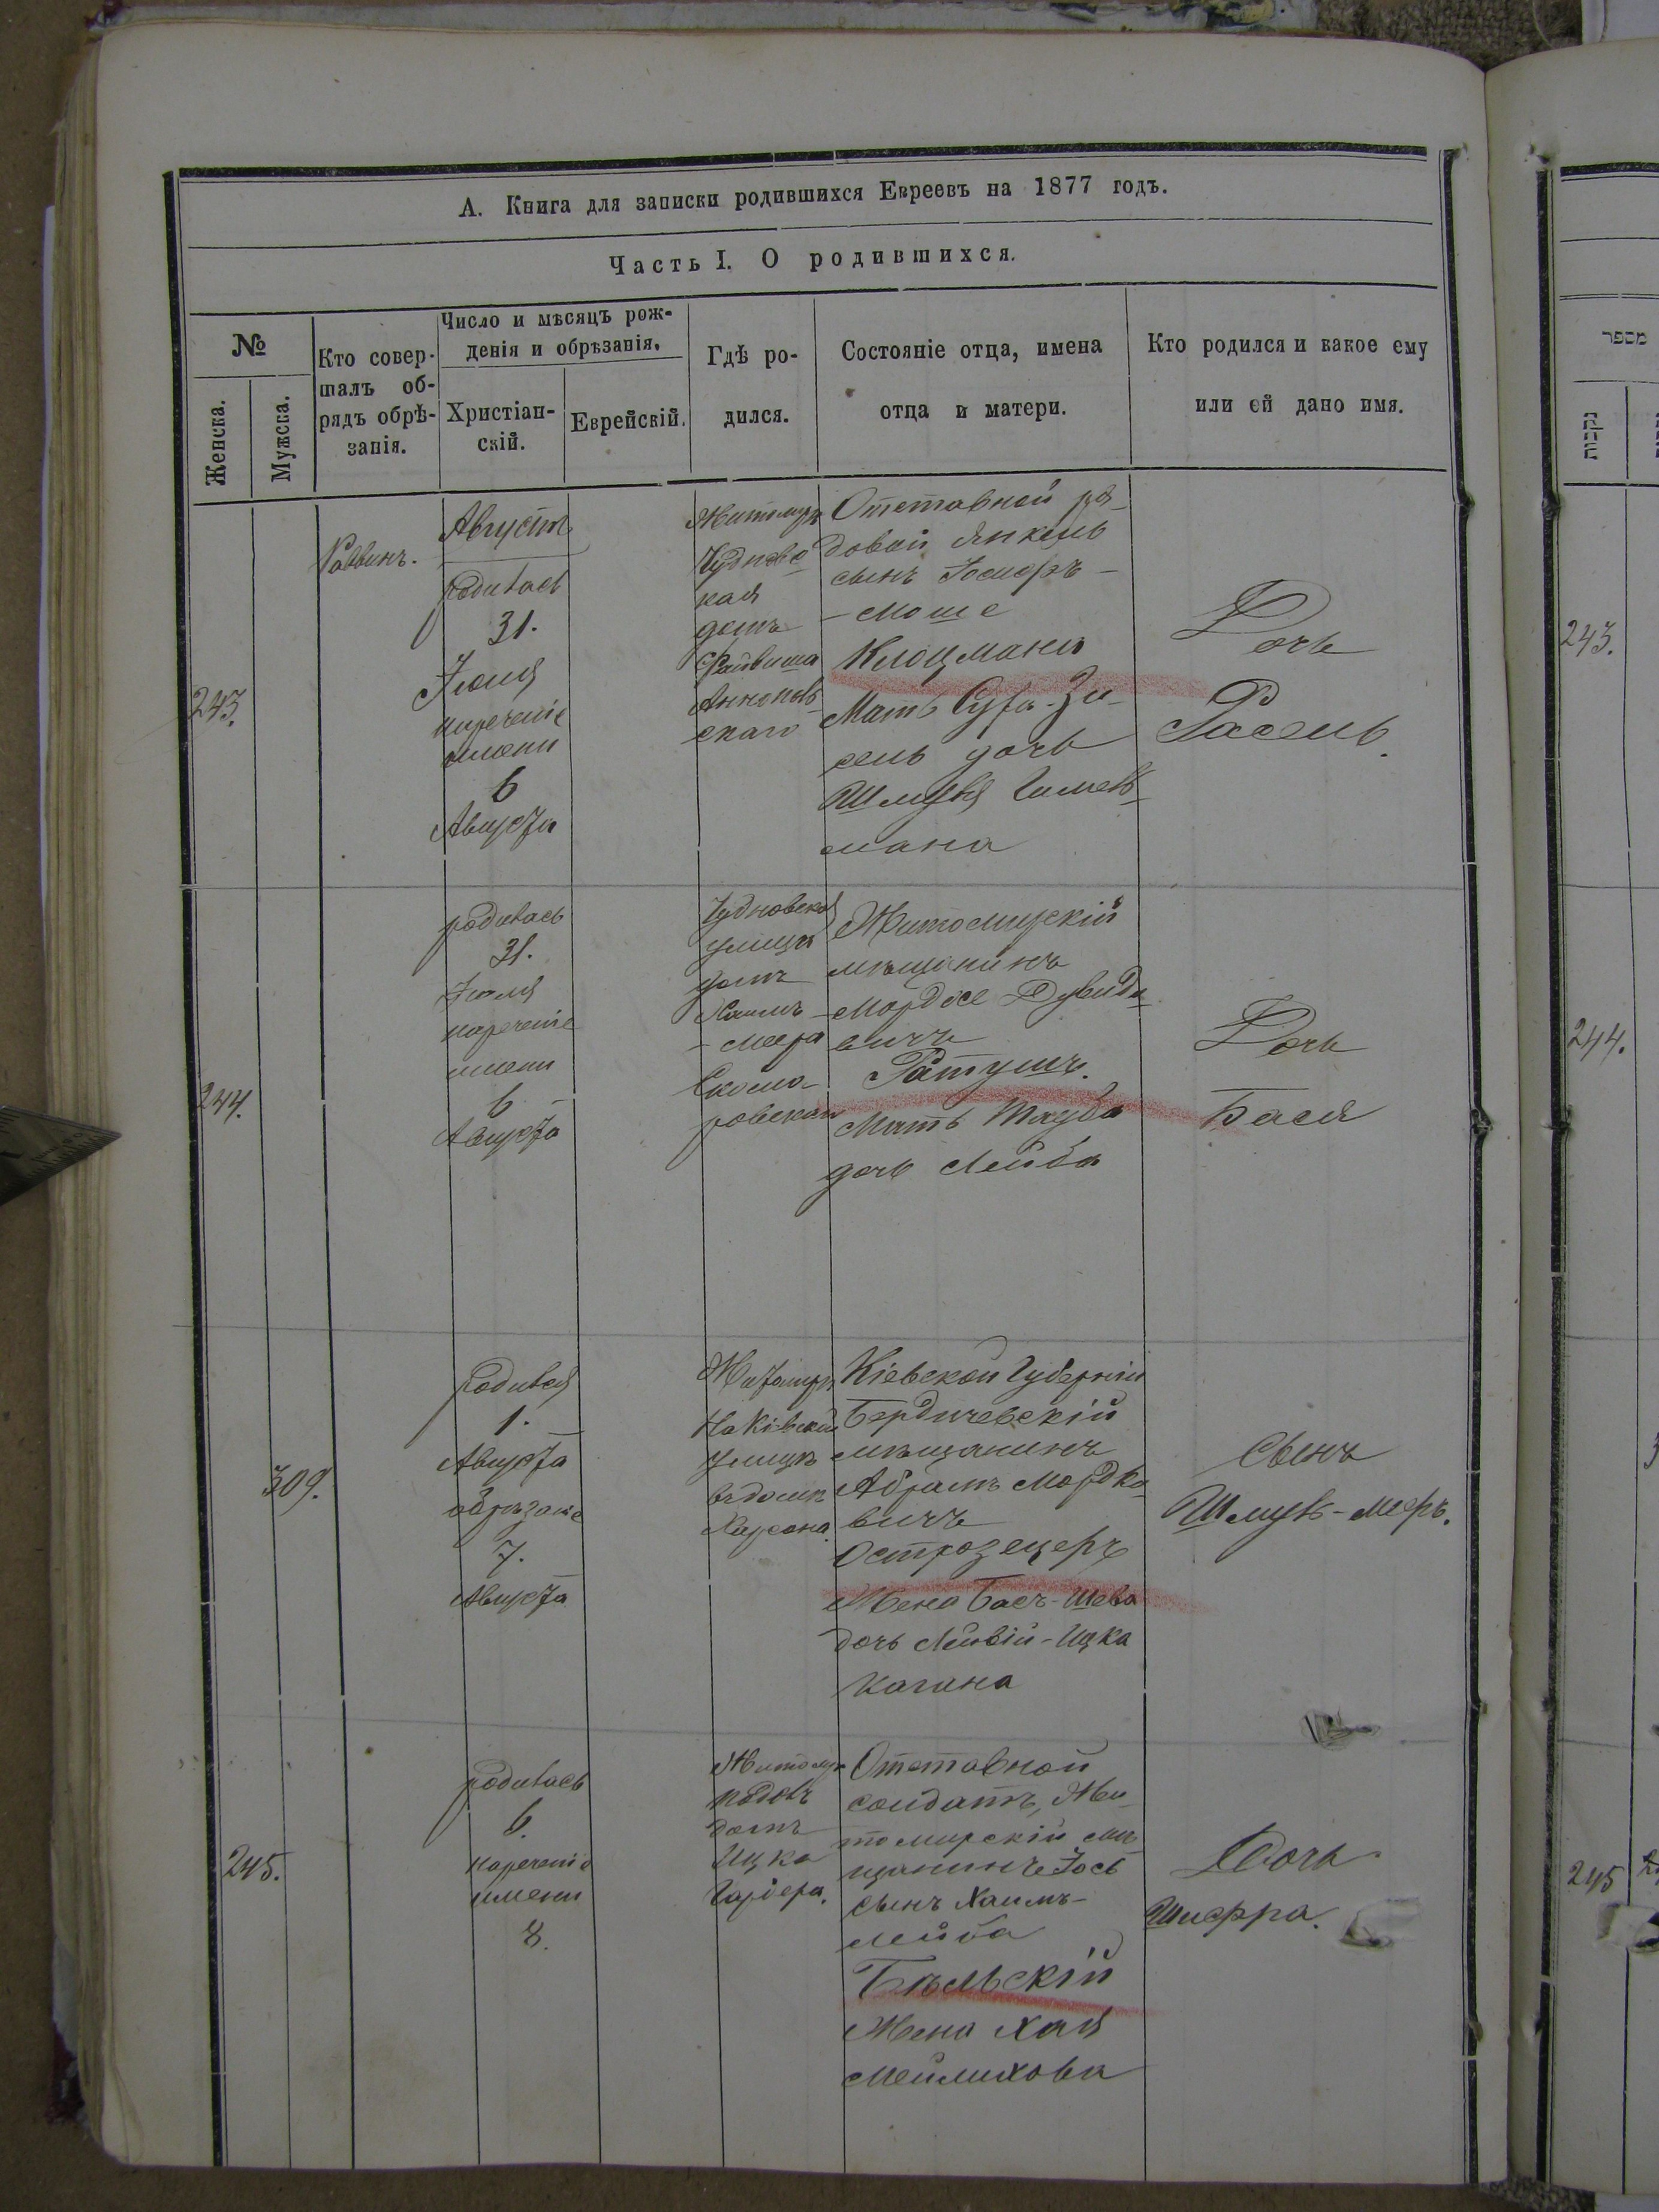 А. Книга для записки родившихся Евреевъ на 1877 годъ.
Часть I. О родившихся.
№
Женска.
Мужска.
Кто совер-
шалъ об-
рядъ обрѣ-
занія.
Число и мѣсяцъ рож-
денія и обрѣзанія.
Христіан-
скій.
Еврейскій.
Гдѣ ро-
дился.
Состояніе отца, имена
отца и матери.
Кто родился и какое ему
или ей дано имя.
243.
Раввинъ.
Августъ
родилась
31.
Іюля
нареченіе
имени
6
Августа
Житомиръ
Чудновс
кая
домъ
Файвиша
скаго
Отставной ря-
довой Янкель
сынъ Іосифъ-
-Моше
Клоцманъ
Мать Сура-Зи-
сель дочь
Шмуля Гитель-
мана
Дочь
Рассель.
244.
родилась
31.
Іюля
нареченіе
имени
6
Августа
Чудновская
улица
домъ
Хаимъ
-Меера
Скомо-
ровскаго
Житомирскій
мѣщанинъ
Мордко Дувидо-
вичъ
Ратушъ.
Мать Тауба
дочь Лейба
Дочь
Бася
309.
родился
1.
Августа
обрѣзаніе
7.
Августа
Житомиръ
На Кіевской
улицѣ
въ домѣ
Херсона.
Кіевской Губерніи
Бердичевскій
мѣщанинъ
Абрамъ Мордко-
вичъ
Острозецеръ
Жена Бася-Шева
дочь Лейвій-Ицка
Кагана
Сынъ
Шмуль-Меръ.
245.
родилась
6.
нареченіе
имени
8.
Житомиръ
домъ
Ицка
Гарбера.
Отставной
солдатъ, Жи-
томирскій мѣ
щанинъ Іось
сынъ Хаимъ-
Лейба
Бѣльскій
Жена Хая
Мейлихова
Дочь
Шифра.
מספר
נקבות
243.
244.
245